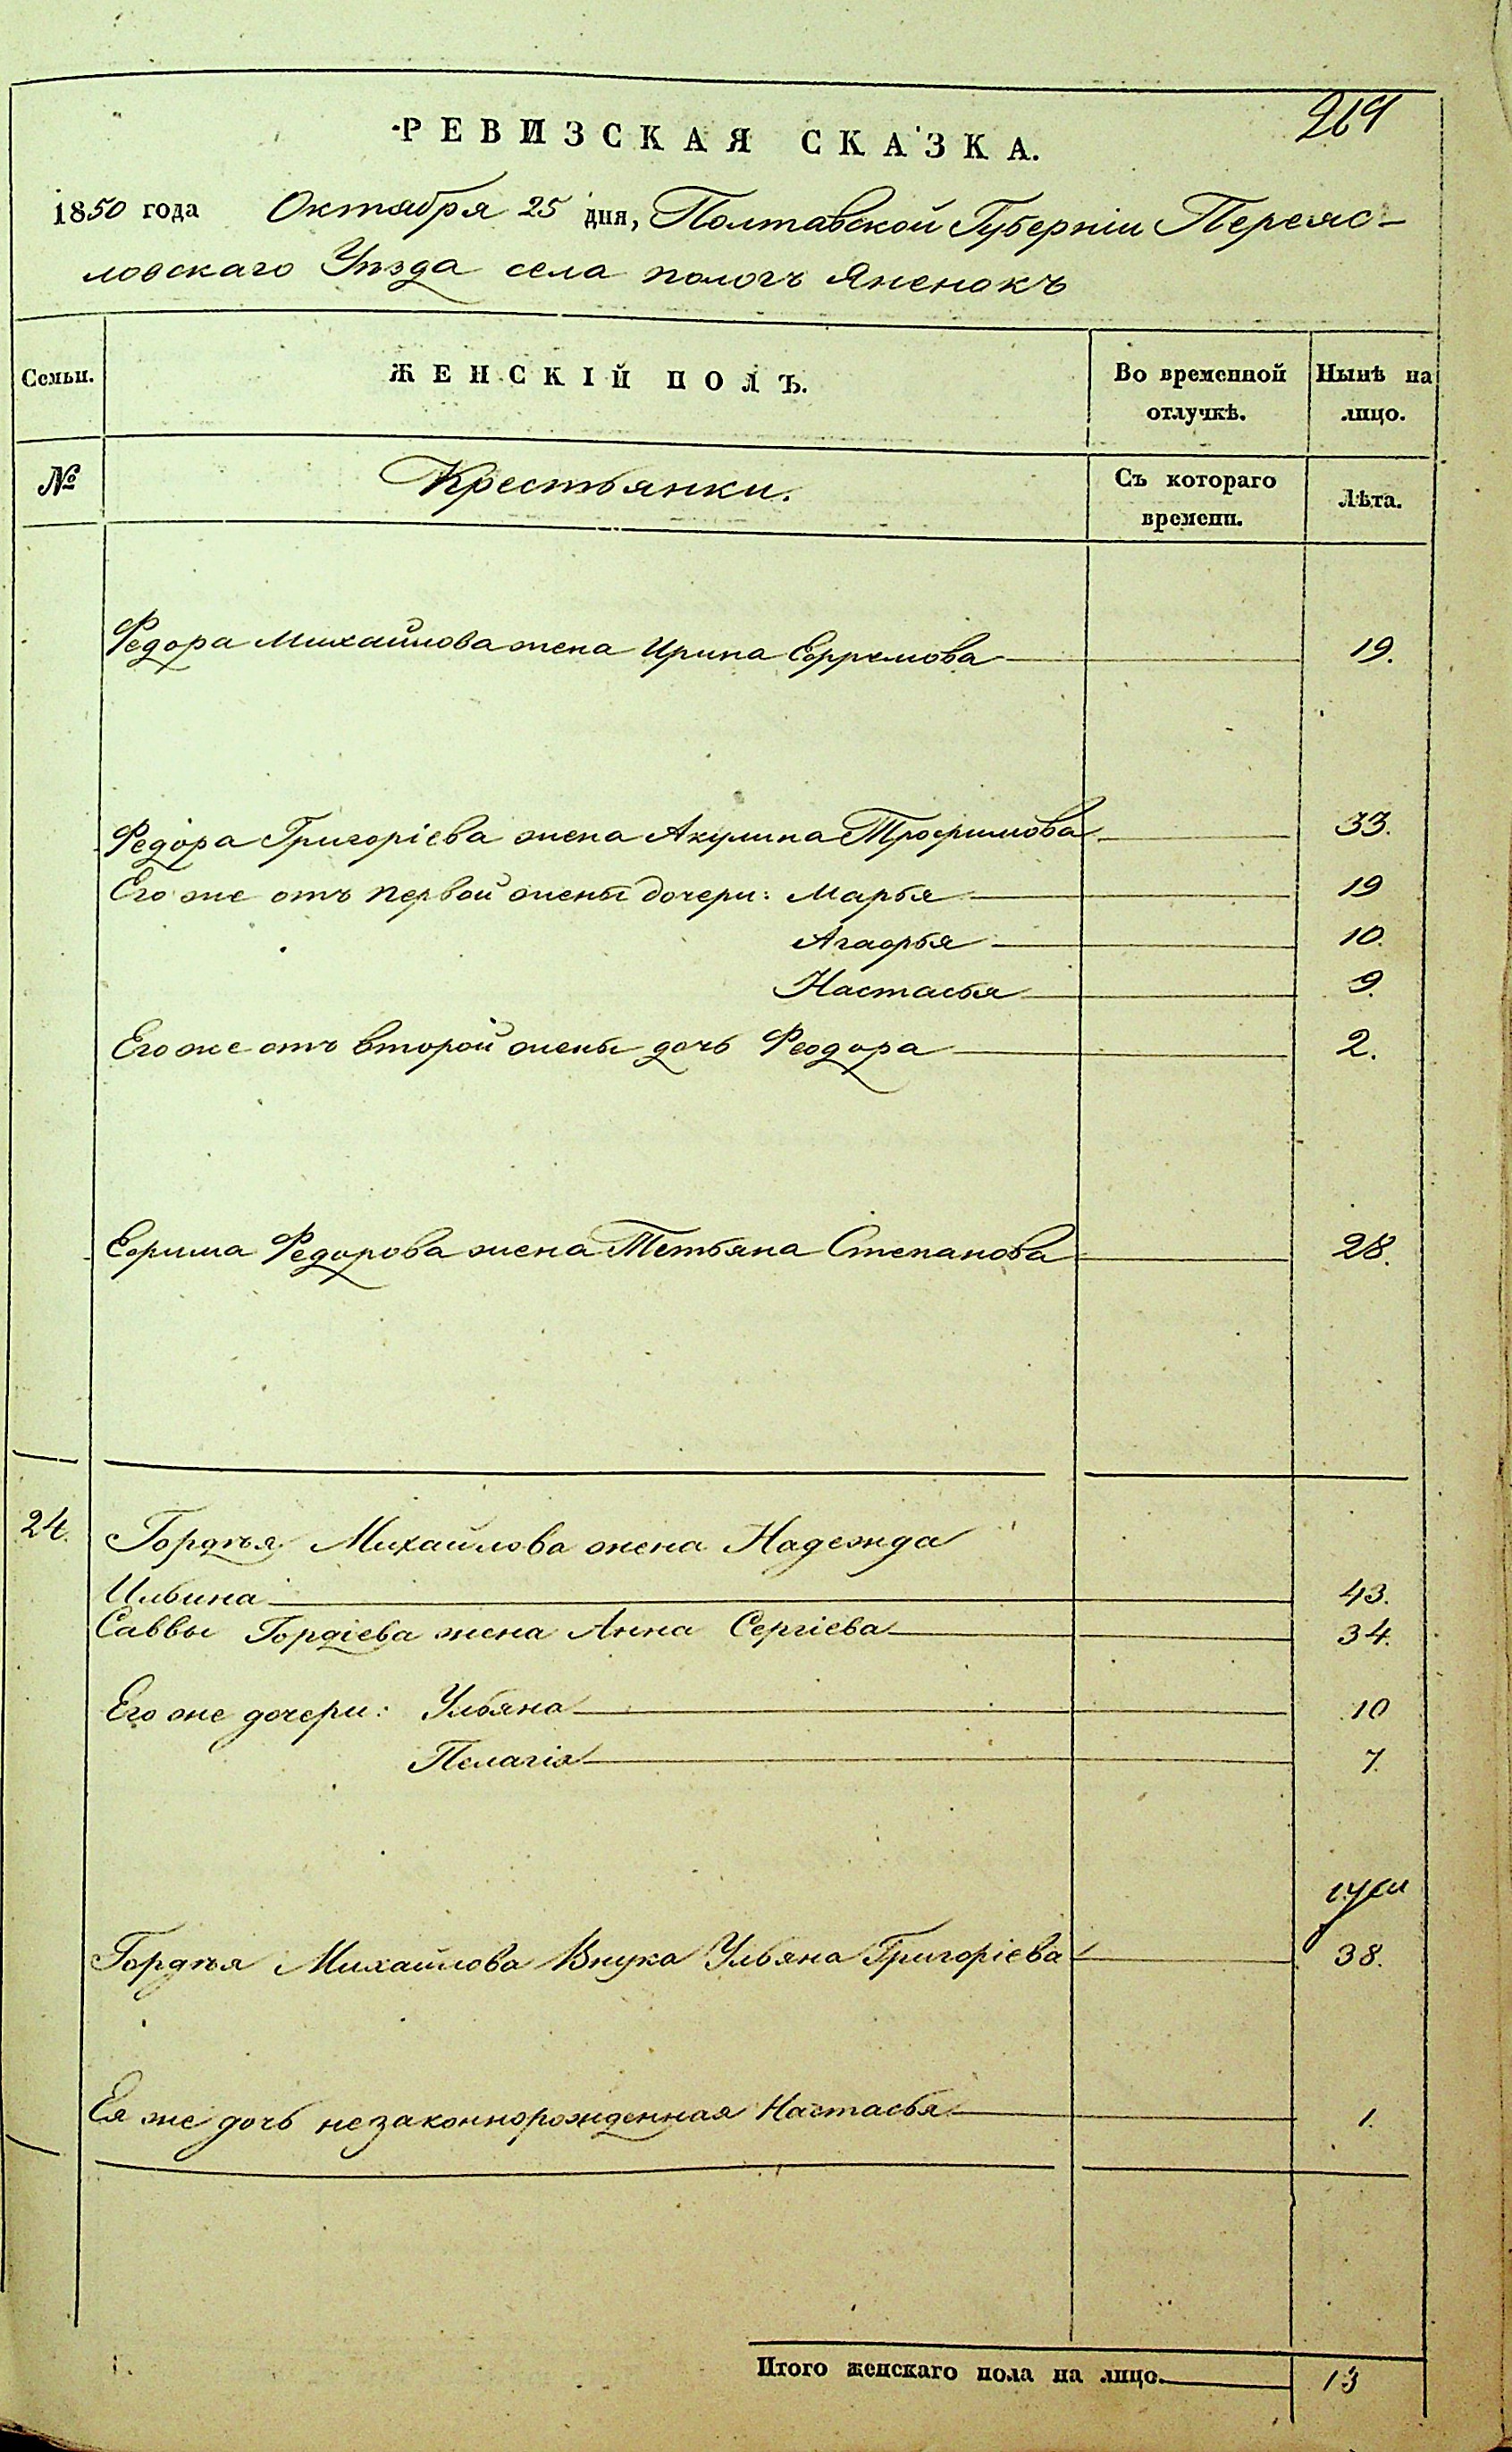 269
РЕВИЗСКАЯ СКАЗКА.
1850 года Октября 25 дня, Полтавской Губерніи Переяс-
ловскаго Уѣзда села пологъ Яненокъ
Семьи.
ЖЕНСКІЙ ПОЛЪ.
Во временной
отлучкѣ.
Нынѣ на
лицо.
№
Крестьянки.
Съ котораго
времени.
Лѣта.
Федора Михайлова жена Ирина Ефремова 19.
Федора Григоріева жена Акулина Трофимова 33.
Его же отъ первой жены дочери: Марья 19
Агафья 10.
Настасья 9.
Его же отъ второй жены дочь Феодора 2.
Ефима Федорова жена Тетьяна Степанова 28.
24. Гордѣя Михайлова жена Надежда
Ильина 43.
Саввы Гордіева жена Анна Сергіева 34.
Его же дочери: Ульяна 10
Пелагія 7.
Гордѣя Михайлова Внука Ульяна Григоріева 38.
Ея же дочь незаконнорожденная Настасья 1.
Итого женскаго пола на лицо. 13